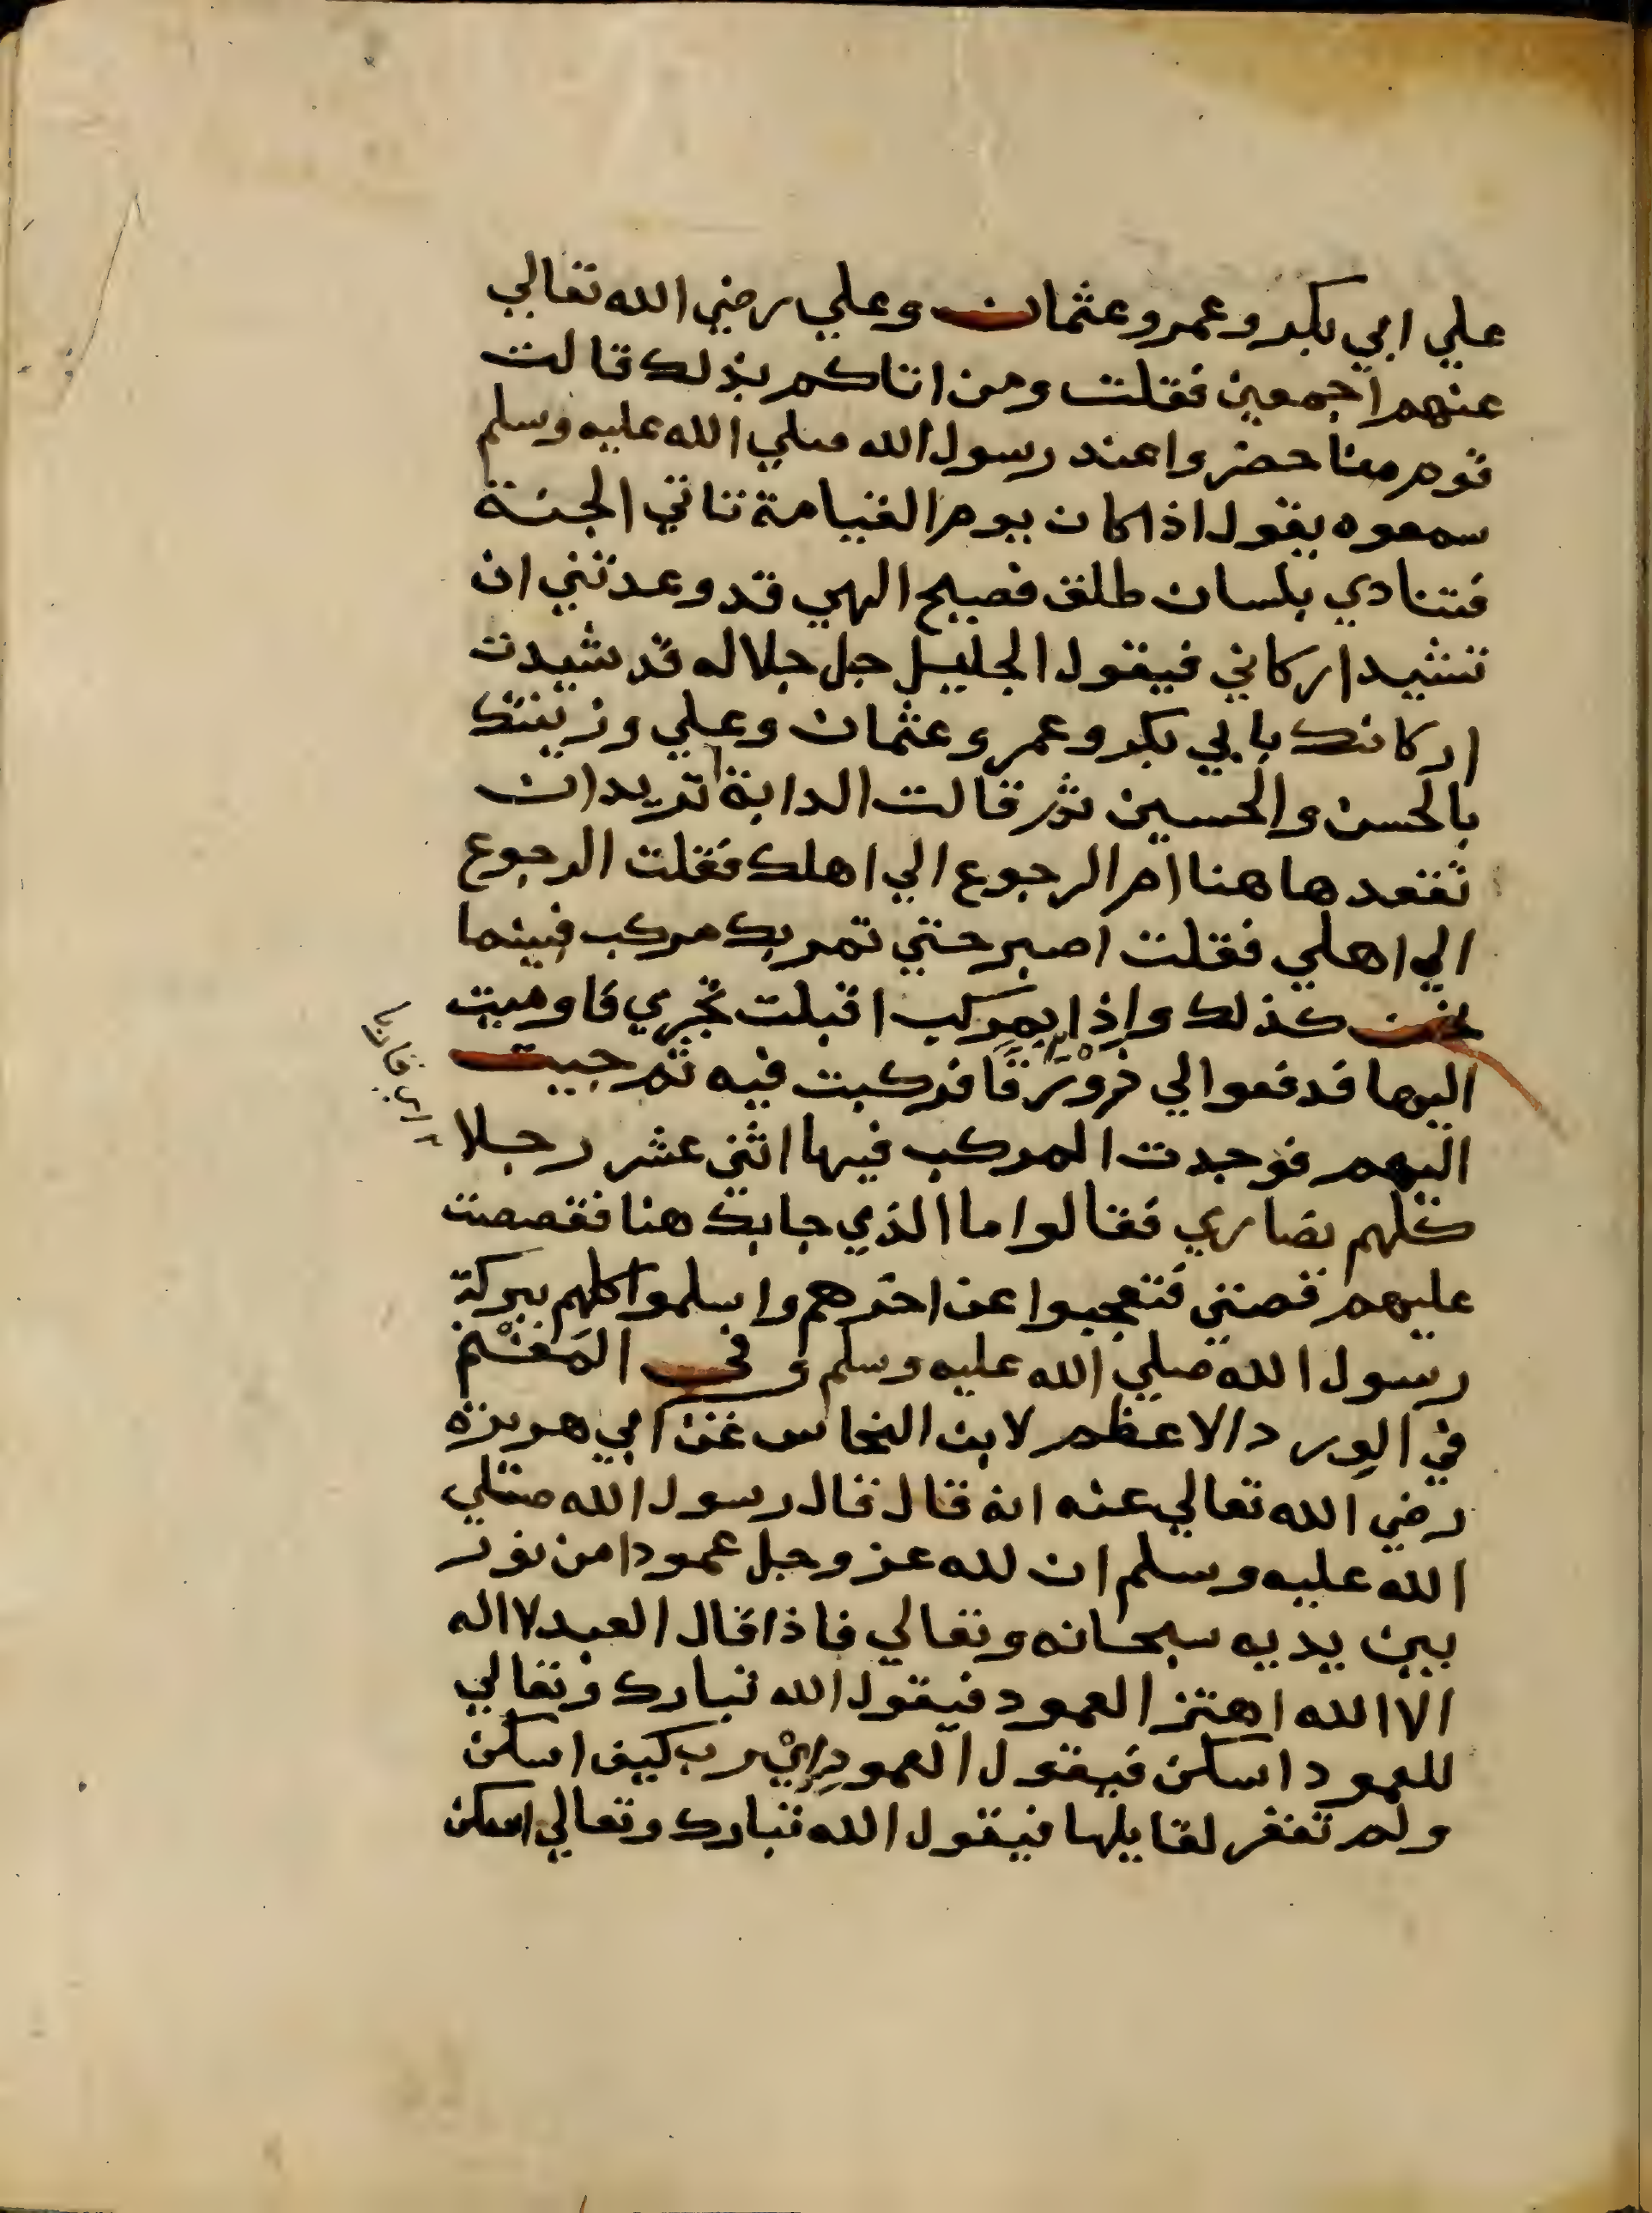 علي ابي بكر وعمر وعثمان وعلي رضي الله تعالي
عنهم اجمعين فقلت ومن اتاكم بذلك قالت
قوم منا حضروا عند رسول الله صلي الله عليه وسلم
سمعوه يقول اذا كان يوم القيامة تاتي الجنة
فتنادي بلسان طلق فصيح الهي قد وعدتني ان
تشيد اركاني فيقول الجليل جل جلاله قد شيدت
اركانك بابي بكر وعمر وعثمان وعلي وزينتك
بالحسن والحسين ثم قالت الدابة اتريد ان
تقعد هاهنا ام الرجوع الي اهلك فقلت الرجوع
الي اهلي فقلت اصبر حتي تمر بك مركب فبينما
نحن كذلك واذا بمركب اقبلت تجري فاوميت
اليها فدفعوا لي زورقا فركبت فيه ثم جيت
اليهم فوجدت المركب فيها اثني عشر رجلا
كلهم نصاري فقالوا ما الذي جابك هنا فقصصت
عليهم قصتي فتعجبوا عن اخرهم واسلموا كلهم ببركة
رسول الله صلي الله عليه وسلم وفي المغنم
في الورد الاعظم لابن النحاس عن ابي هريرة
رضي الله تعالي عنه انه قال قال رسول الله صلي
الله عليه وسلم ان لله عز وجل عمودا من نور
بين يديه سبحانه وتعالي فاذا قال العبد لا اله
الا الله اهتز العمود فيقول الله تبارك وتعالي
للعمود اسكن فيقول العمود اي رب كيف اسكن
ولم تغفر لقايلها فيقول الله تبارك وتعالي اسكن